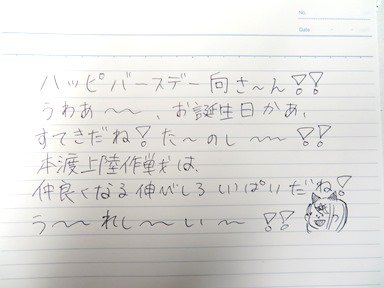 No.
Date
ハッピバースデー向さ〜ん!!
うわあ〜〜、お誕生日かあ、
すてきだね!た〜のし〜〜!!
本渡上陸作戦は、
仲良くなる伸びしろいぱいだね!
う〜〜れし〜い〜!!